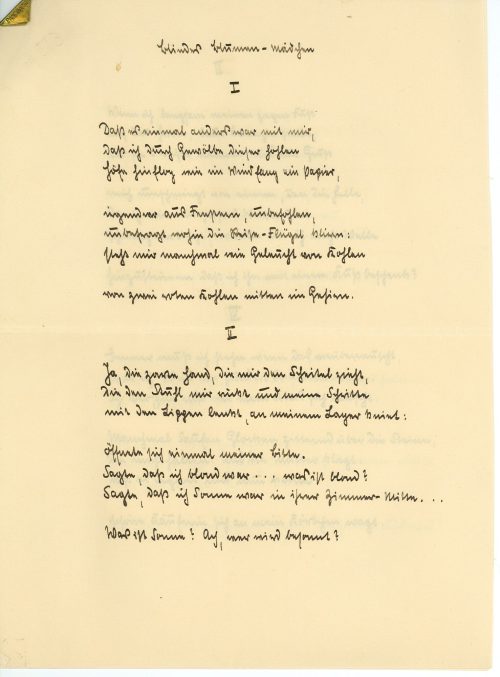 Blindes Blumen-Mädchen
I
Daß es einmal anders war mit mir,
daß ich durch Gewölbe dieser hohlen
Höfe hinflog wie im Windfang ein Papier,
irgendwer aus Fenstern, unbefohlen,
unbefragt wohin die Reise-Flügel klirrn:
steht mir manchmal wie Geleucht von Kohlen
von zwei roten Kohlen mitten im Gehirn.
II
Ja, die zarte Hand, die mir den Scheitel zieht,
die den Stuhl mir rückt und meine Schritte
mit den Lippen lenkt, an meinem Lager kniet:
öffnete sich einmal meiner Bitte.
Sagte, daß ich blond war... was ist blond?
Sagte, daß ich Sonne war in ihrer Zimmer-Mitte...
Was ist Sonne? Ach, wer wird besonnt?